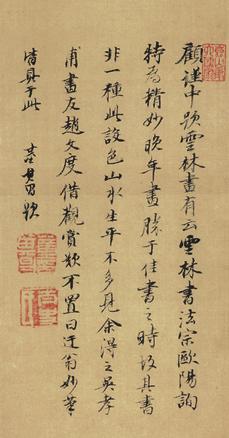 顧謹中題雲林畫有云雲林書法宗歐陽詢
特為精妙晚年畫勝于佳書之時故其書
非一種此設色山水生平不多見余得之吳孝
甫畫友趙文度借觀賞歎不置曰迂翁妙筆
皆具于此 其昌題